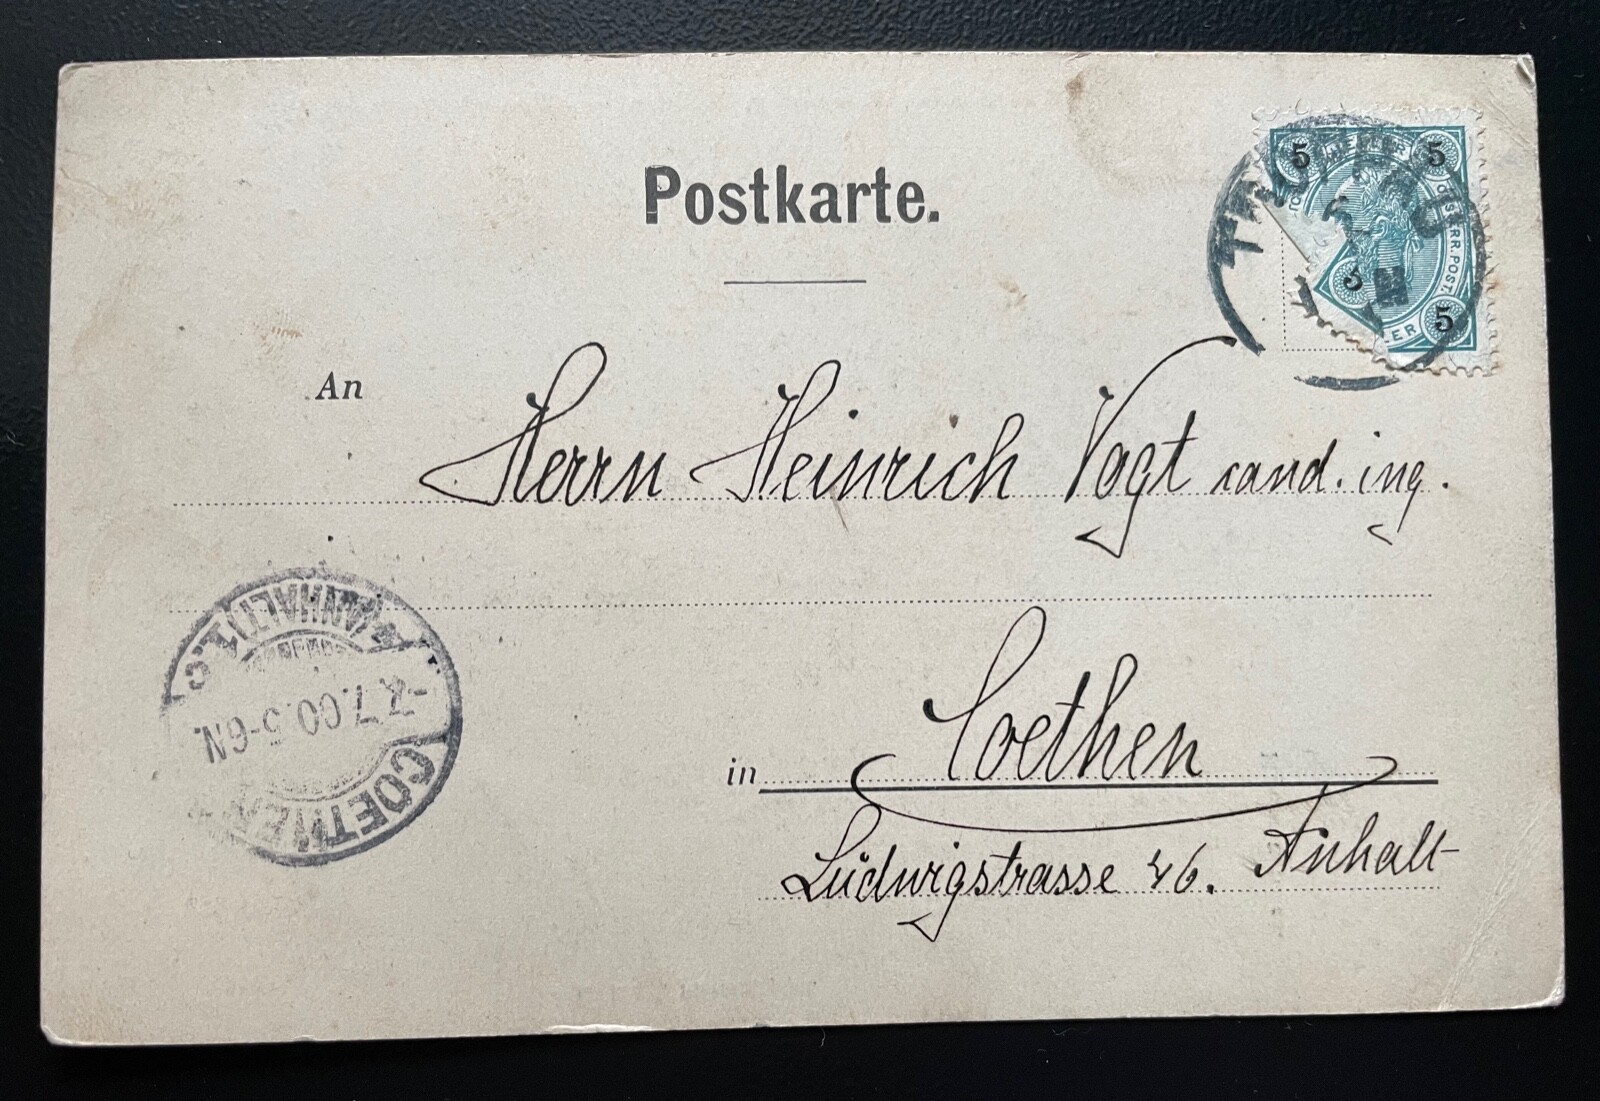 Postkarte.
5 5
ÖSTERR. POST.
5 5
An
Herrn Heinrich Vogt cand. ing.
in Coethen
Anhalt
Ludwigstrasse 46.
COETHEN
(ANHALT) 1.
7.7.00.5-6N.